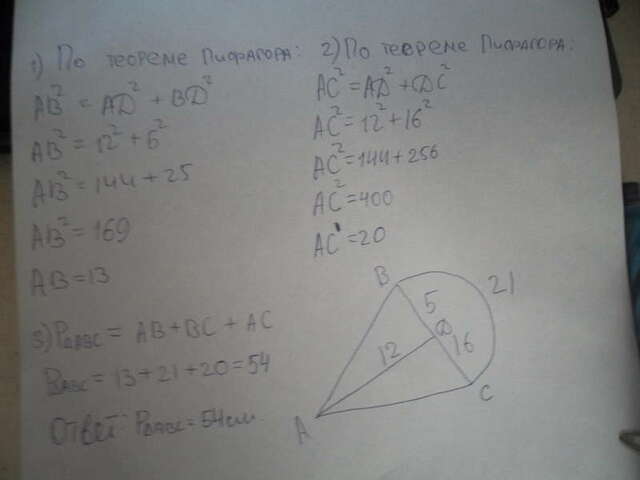 1) По теореме Пифагора:
AB² = AD² + BD²
AB² = 12² + 5²
AB² = 144 + 25
AB² = 169
AB = 13
2) По теореме Пифагора:
AC² = AD² + DC²
AC² = 12² + 16²
AC² = 144 + 256
AC² = 400
AC = 20
3) P△ABC = AB + BC + AC
PABC = 13 + 21 + 20 = 54
Ответ: P△ABC = 54 см.
B
21
5
D
12
16
C
A